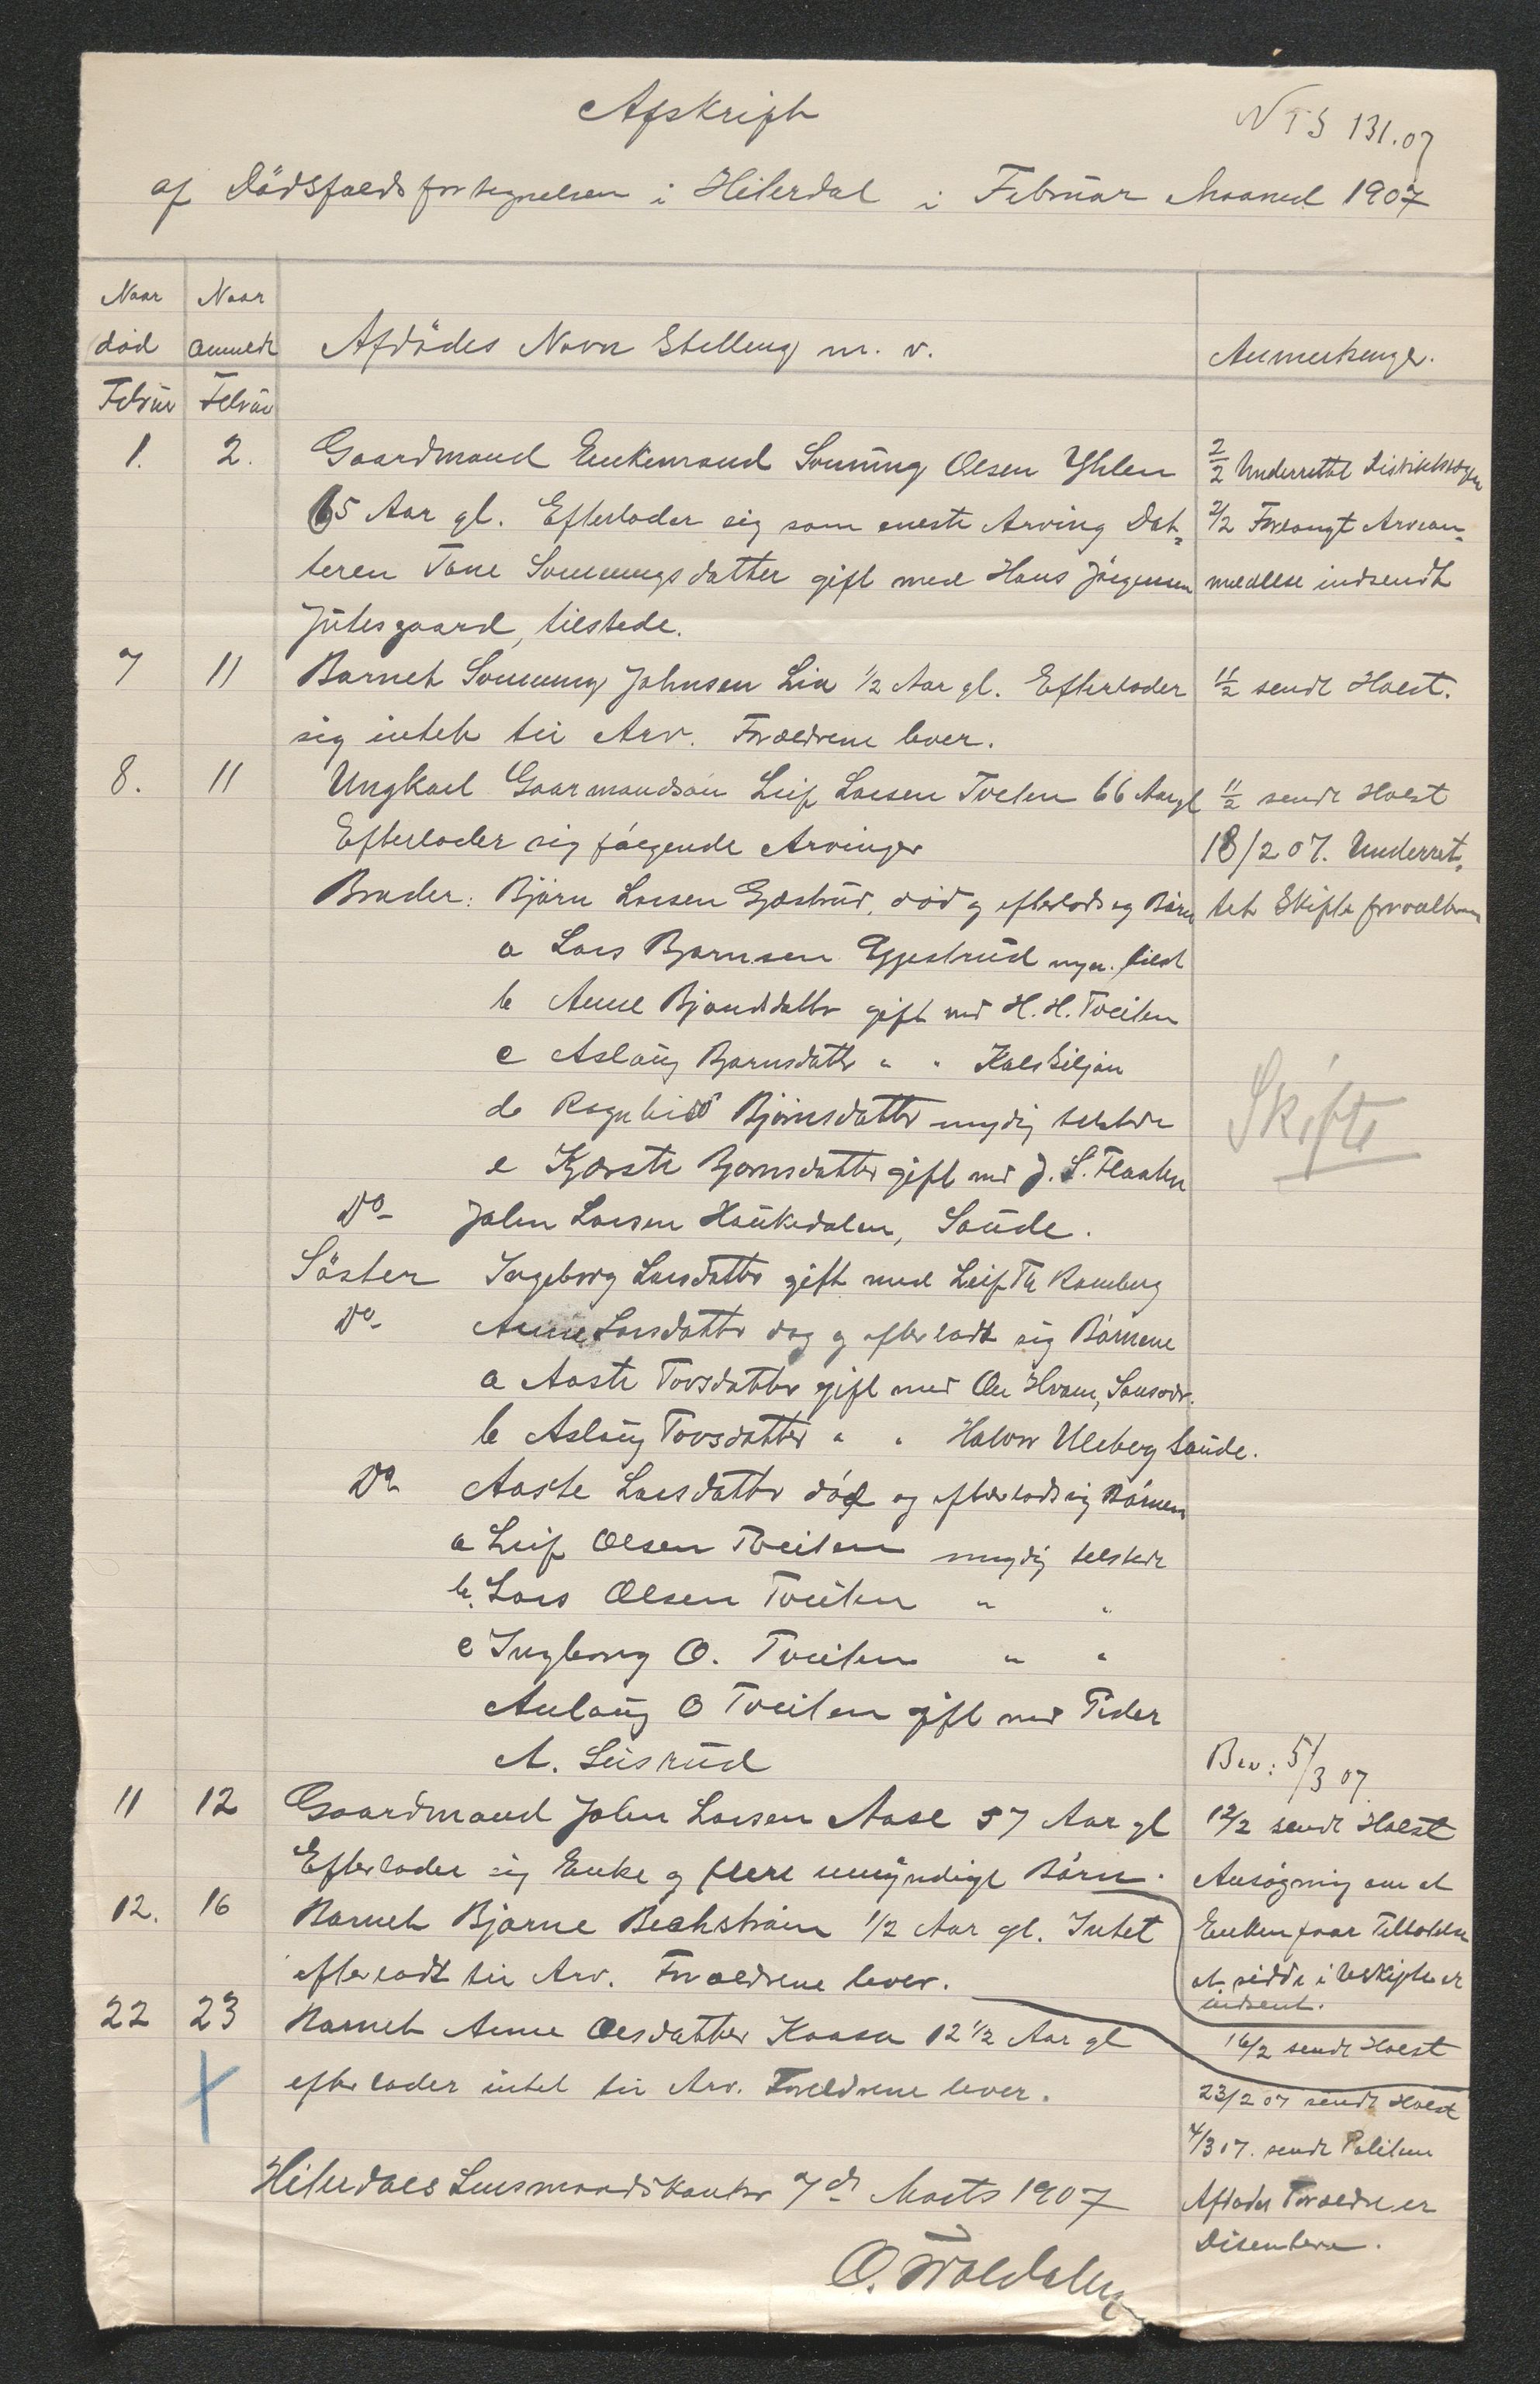 Afskrift
NTS 131.07
af Dødsfaldsfortegnelsen i Hiterdal i Februar Maaned 1907
Naar død
Naar anmeldt
Afdødes Navn Stelling m. v.
Anmerkninger.
Februar Februar
1. 2. Gaardmand Enkemand Sonning Olsen Yhlen
65 Aar gl. Efterlader sig som eneste Arving Dat-
teren Tone Sonningsdatter gift med Hans Jørgensen
Jutesgaard, tilstede.
2/2 Underrettet Distriktslægen
2/2 Forlangt Arvean-
meldelse indsendt
7 11 Barnet Sonning Johnsen Lia 1/2 Aar gl. Efterlader
sig intet til Arv. Forældrene lever.
11/2 sendt Holst.
8. 11 Ungkarl Gaarmandsøn Leif Larsen Tveten 66 Aar gl
Efterlader sig følgende Arvinger
11/2 sendt Holst
18/2 07. Underret-
tet Skifteforvalteren
Broder: Bjørn Larsen død og efterlod sig Børn
a Lars Bjørnsen Egjestrud myn. tilst
b Anne Bjørnsdatter gift med H. H. Tveiten
c Aslaug Bjørnsdatter " "
d Ragnhild Bjørnsdatter myndig tilstede
e Kjerste Bjørnsdatter gift med J. S. Flaaten
Skifte
Do John Larsen Haukedalen, Saude.
Søster Ingeborg Larsdatter gift med Leif Th Ramberg
Do Anne Larsdatter død og efterladt sig Børnene
a Aaste Tovsdatter gift med Ole Hvam,
b Aslaug Tovsdatter " " Halvor Uleberg Saude.
Do Aaste Larsdatter død og efterlod sig Børnene
a Leif Olsen Tveiten myndig tilstede
b. Lars Olsen Tveiten " "
c Ingborg O. Tveiten " "
Anlaug O Tveiten gift med Peder
A. Leisrud
Bev: 5/3 07.
11 12 Gaardmand John Larsen Aase 57 Aar gl
Efterlader sig Enke og flere umyndige Børn.
12/2 sendt Holst
Ansøgning om at
Enken faar Tilladelse
at sidde i Uskifte er
indsent.
12. 16 Barnet Bjarne Beckstrøm 1/2 Aar gl. Intet
efterladt til Arv. Forældrene lever.
16/2 sendt Holst
22 23 Barnet Anne Olsdatter Kaasa 12 1/2 Aar gl
efterlader intet til Arv. Forældrene lever.
23/2 07 sendt Holst
4/3 07. sendt Politiet
Afdødes Forældre er
Disentere.
Hiterdals Lensmandskontor 7de Marts 1907